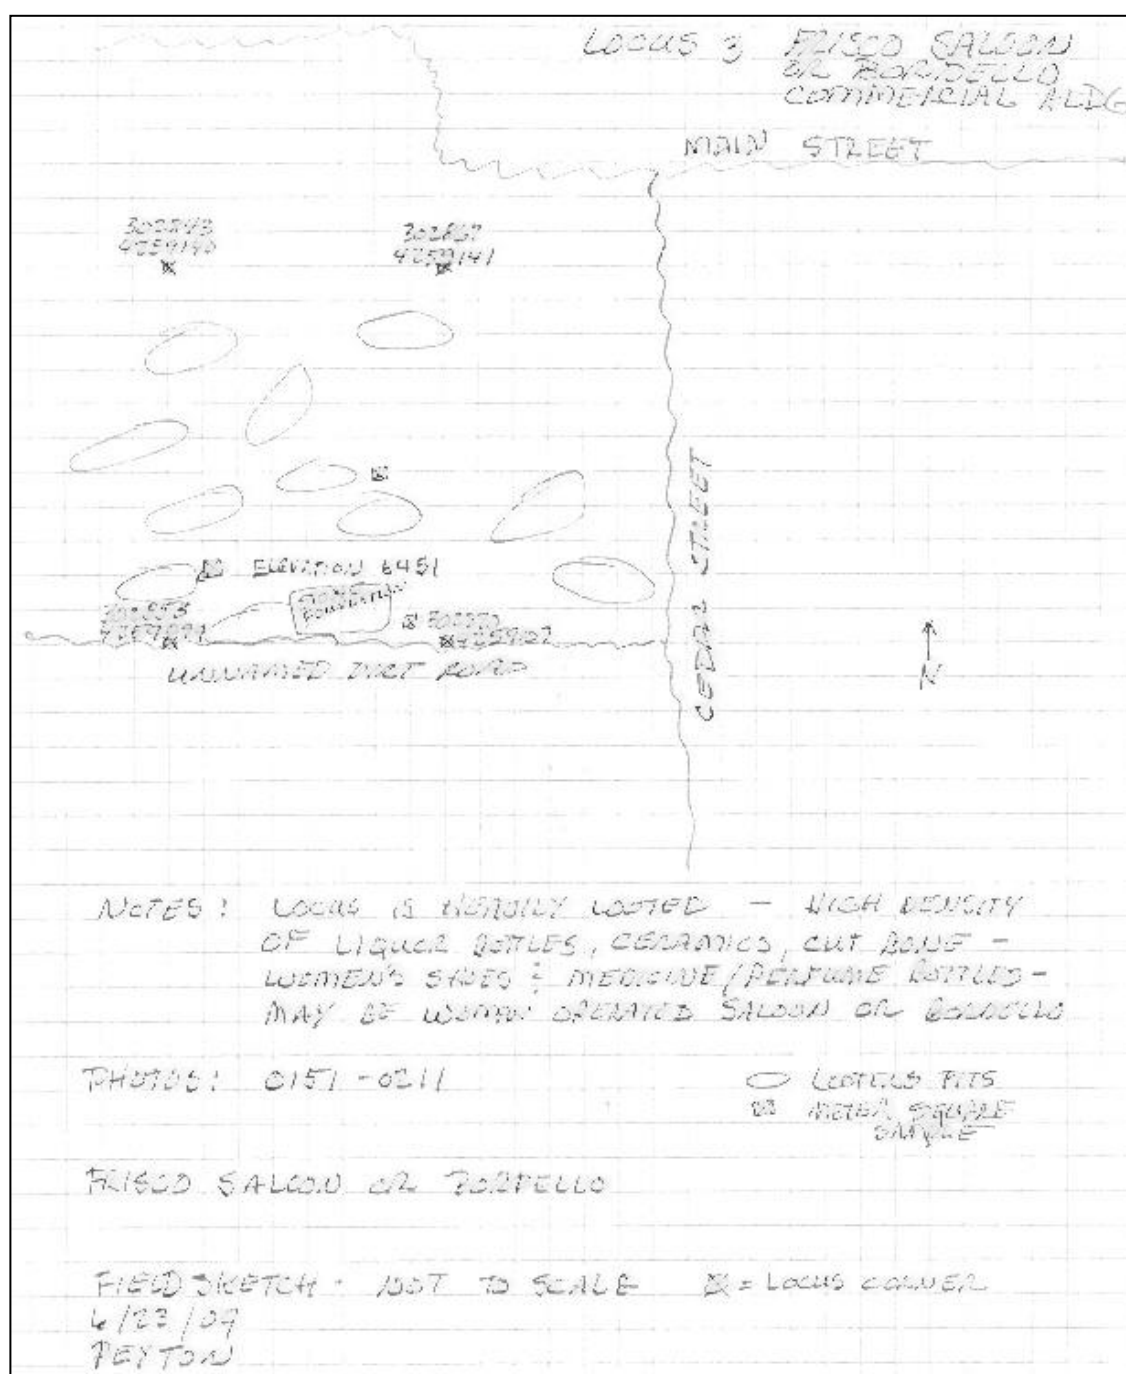 LOCUS 3 FRISCO SALOON
OR BORDELLO
COMMERCIAL BLDG
MAIN STREET
302843
4259140
302867
4259141
CEDAR STREET
ELEVATION 6451
STONE
FOUNDATION
302853
UNNAMED DIRT ROAD
N
NOTES: LOCUS IS HEAVILY LOOTED – HIGH DENSITY
OF LIQUOR BOTTLES, CERAMICS, CUT BONE –
WOMEN'S SHOES & MEDICINE/PERFUME BOTTLES –
MAY BE WOMAN OPERATED SALOON OR BORDELLO
PHOTOS: 0151-0211
LOOTERS PITS
METER SQUARE
SAMPLE
FRISCO SALOON OR BORDELLO
FIELD SKETCH - NOT TO SCALE
= LOCUS CORNER
6/23/09
PEYTON